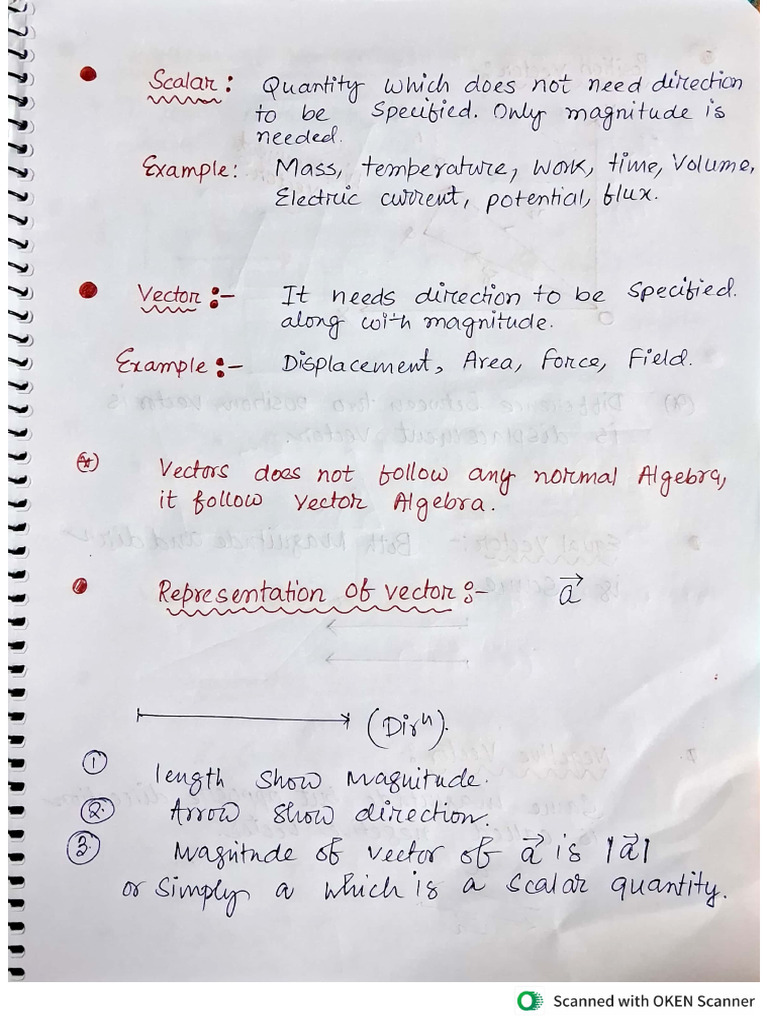 Scalar: Quantity which does not need direction
to be Specified. Only magnitude is
needed.
Example: Mass, temperature, work, time, Volume,
Electric current, potential, flux.
Vector :- It needs direction to be specified.
along with magnitude.
Example :- Displacement, Area, Force, Field.
(*) Vectors does not follow any normal Algebra,
it follow vector Algebra.
Representation of vector :- a⃗
(Dirⁿ).
① length show Magnitude.
② Arrow show direction.
③ Magnitude of vector of a⃗ is |a⃗|
or simply a which is a scalar quantity.
Scanned with OKEN Scanner